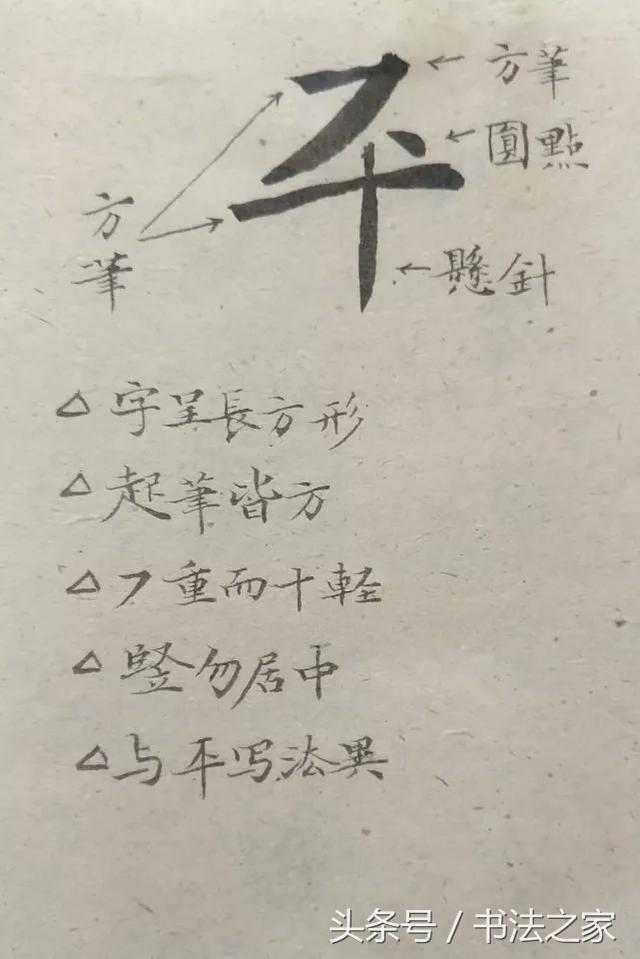 平
方筆
圓點
方筆
懸針
△字呈長方形
△起筆皆方
△㇇重而十軽
△竪勿居中
△与平写法異
头条号 / 书法之家